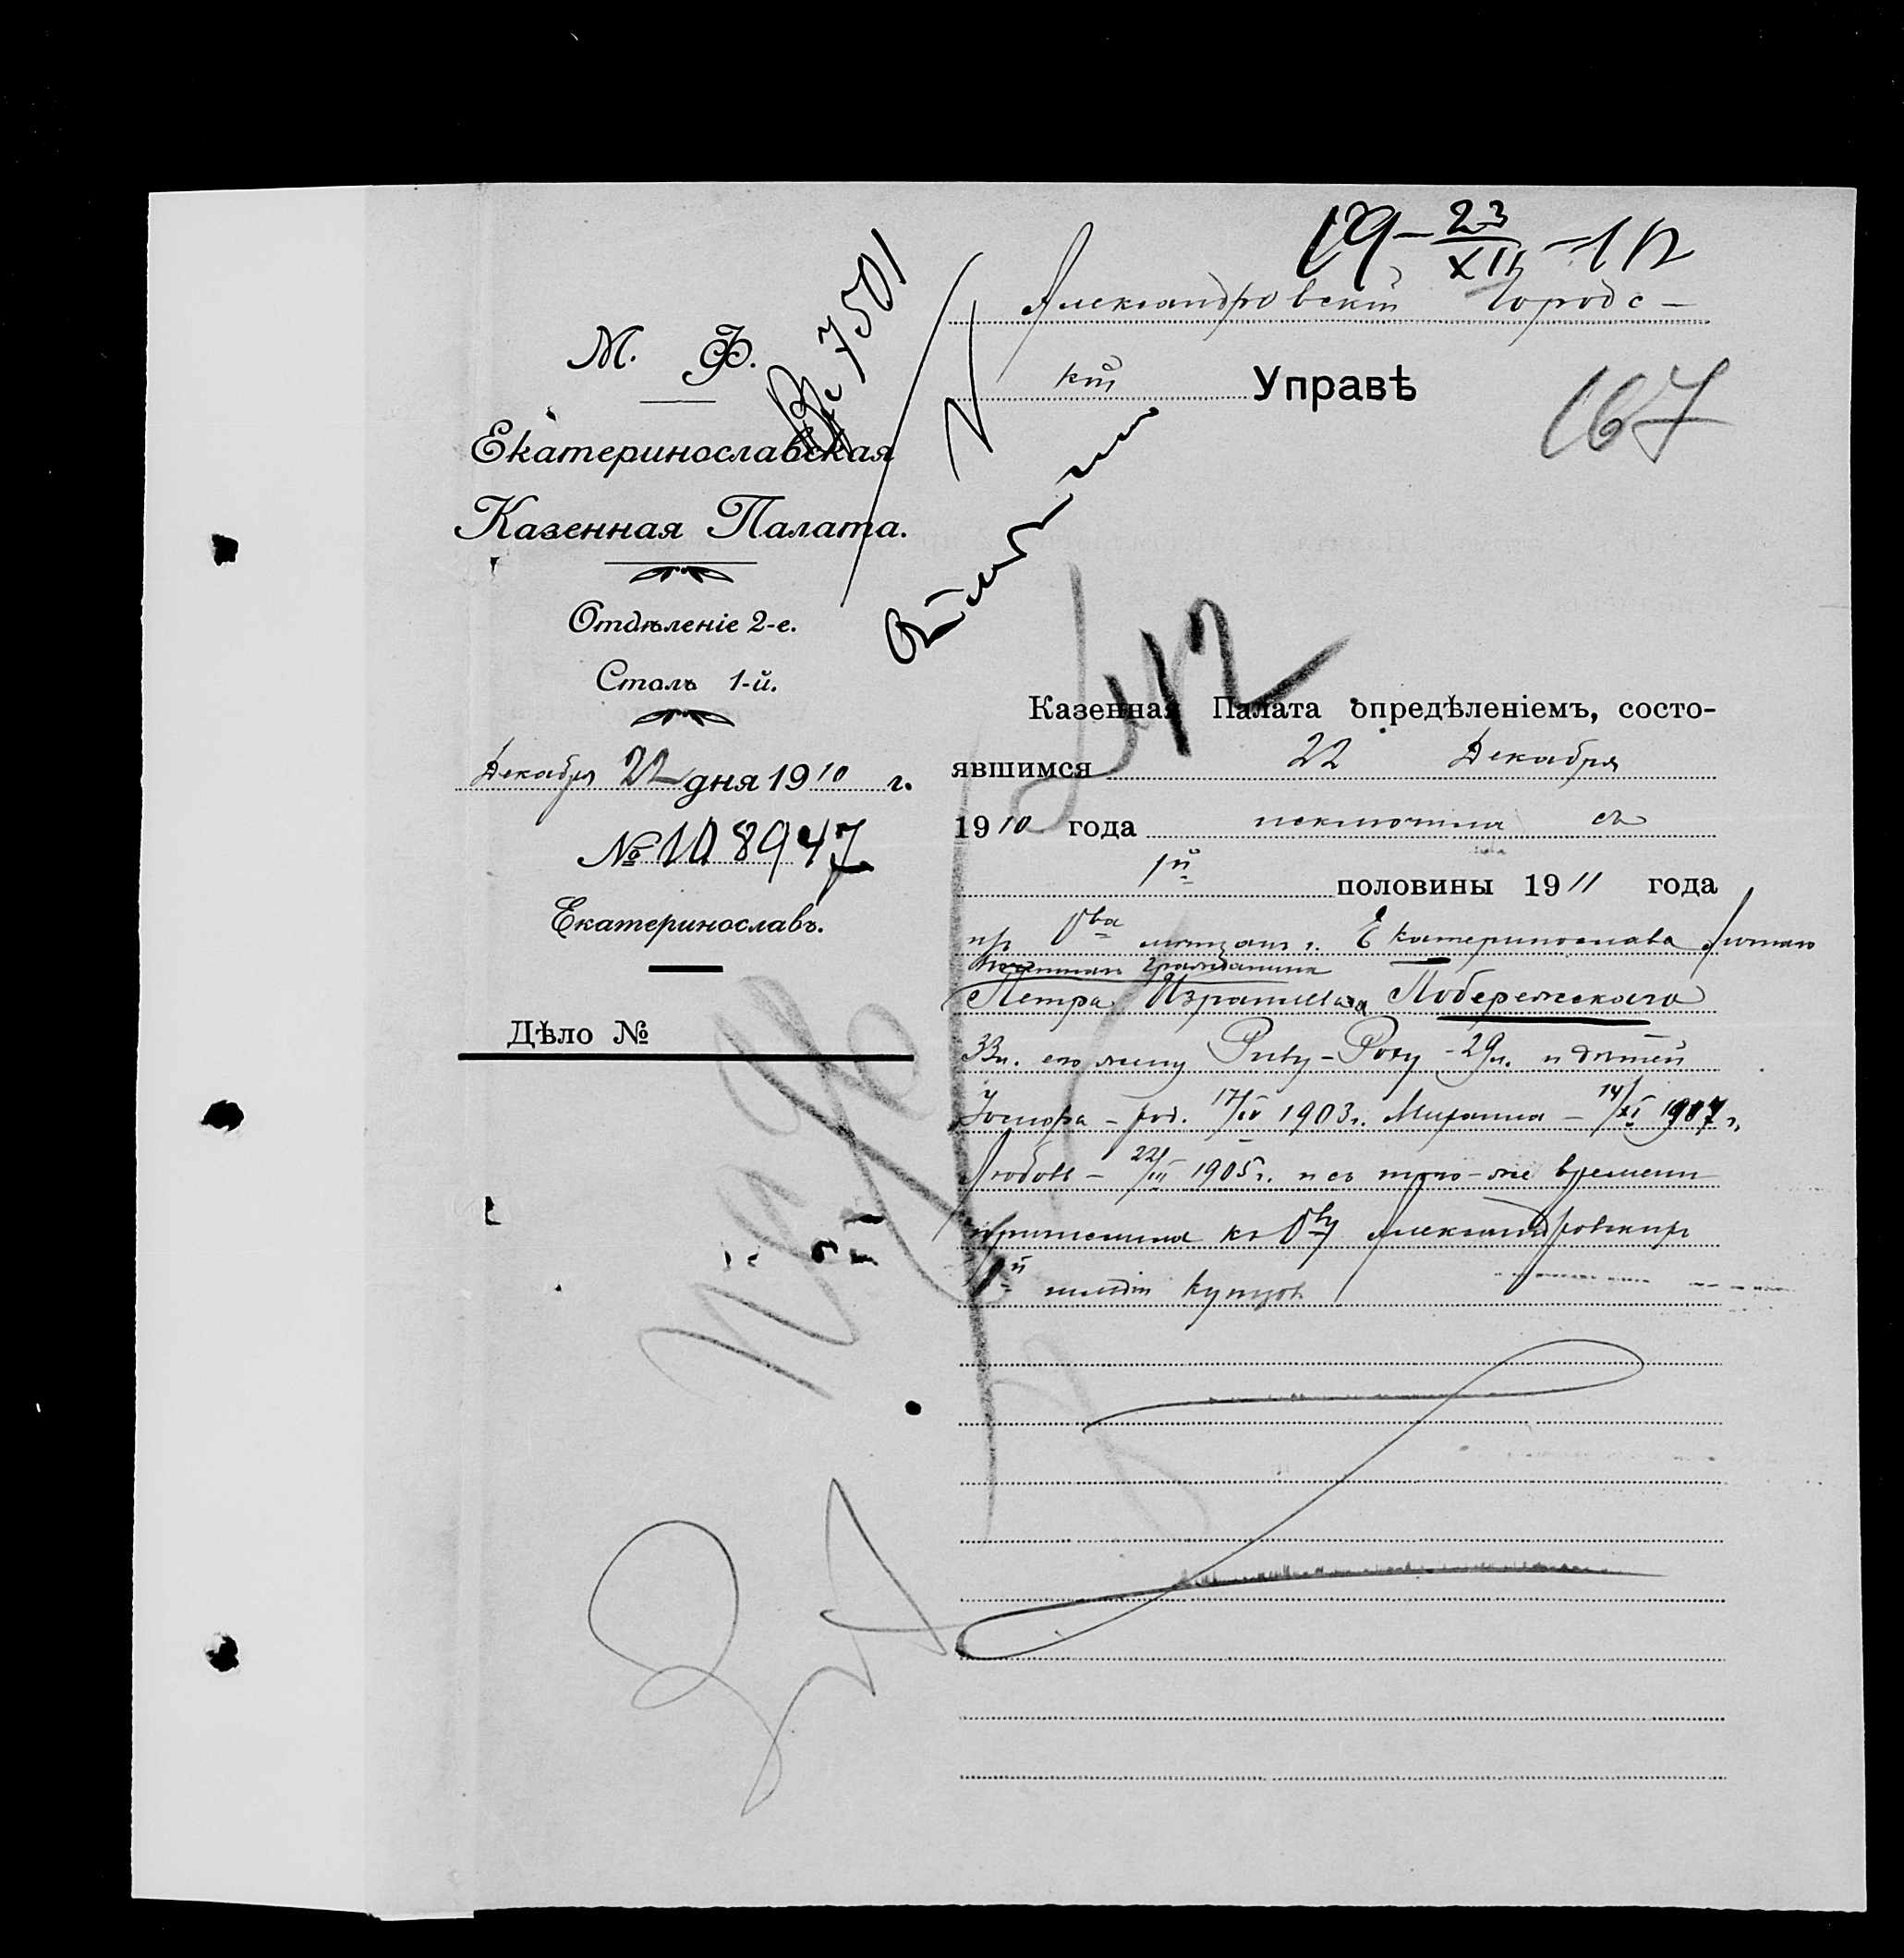 19-23/XII-10
Александровской Городс-
кой Управѣ
167
Вх 7501
М. Ф.
Екатеринославская
Казенная Палата.
Отдѣленіе 2-е.
Столъ 1-й.
Декабря 22 дня 1910 г.
№ 108947
Екатеринославъ.
Дѣло №
Казенная Палата опредѣленіемъ, состо-
явшимся 22 Декабря
1910 года исключила съ
1й половины 1911 года
изъ о-ва мѣщанъ г. Екатеринослава личнаго
почетнаго гражданина
Петра Израилева Побережскаго
33 л. его жену Риву-Розу - 29 л. и дѣтей
Іосифа - род. 17/IV 1903 г. Михаила - 14/XI 1907 г.
Любовь - 22/III 1905 г. и съ того-же времени
причислила къ о-ву Александровскихъ
1й гильдіи купцовъ